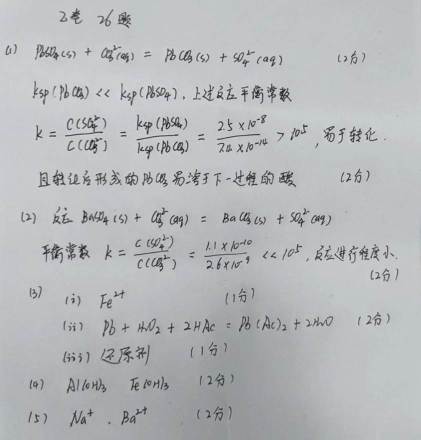 2卷 26题
(1) PbSO₄(s) + CO₃²⁻(aq) = PbCO₃(s) + SO₄²⁻(aq) (2分)
Ksp(PbCO₃) << Ksp(PbSO₄), 上述反应平衡常数
K = C(SO₄²⁻)/C(CO₃²⁻) = Ksp(PbSO₄)/Ksp(PbCO₃) = 2.5×10⁻⁸/7.4×10⁻¹⁴ > 10⁵, 易于转化.
且转化后形成的PbCO₃易溶于下一过程的酸 (2分)
(2) 反应 BaSO₄(s) + CO₃²⁻(aq) = BaCO₃(s) + SO₄²⁻(aq)
平衡常数 K = C(SO₄²⁻)/C(CO₃²⁻) = 1.1×10⁻¹⁰/2.6×10⁻⁹ << 10⁵, 反应进行程度小.
(2分)
(3) (i) Fe²⁺ (1分)
(ii) Pb + H₂O₂ + 2HAc = Pb(Ac)₂ + 2H₂O (2分)
(iii) 还原剂 (1分)
(4) Al(OH)₃ Fe(OH)₃ (2分)
(5) Na⁺、Ba²⁺ (2分)